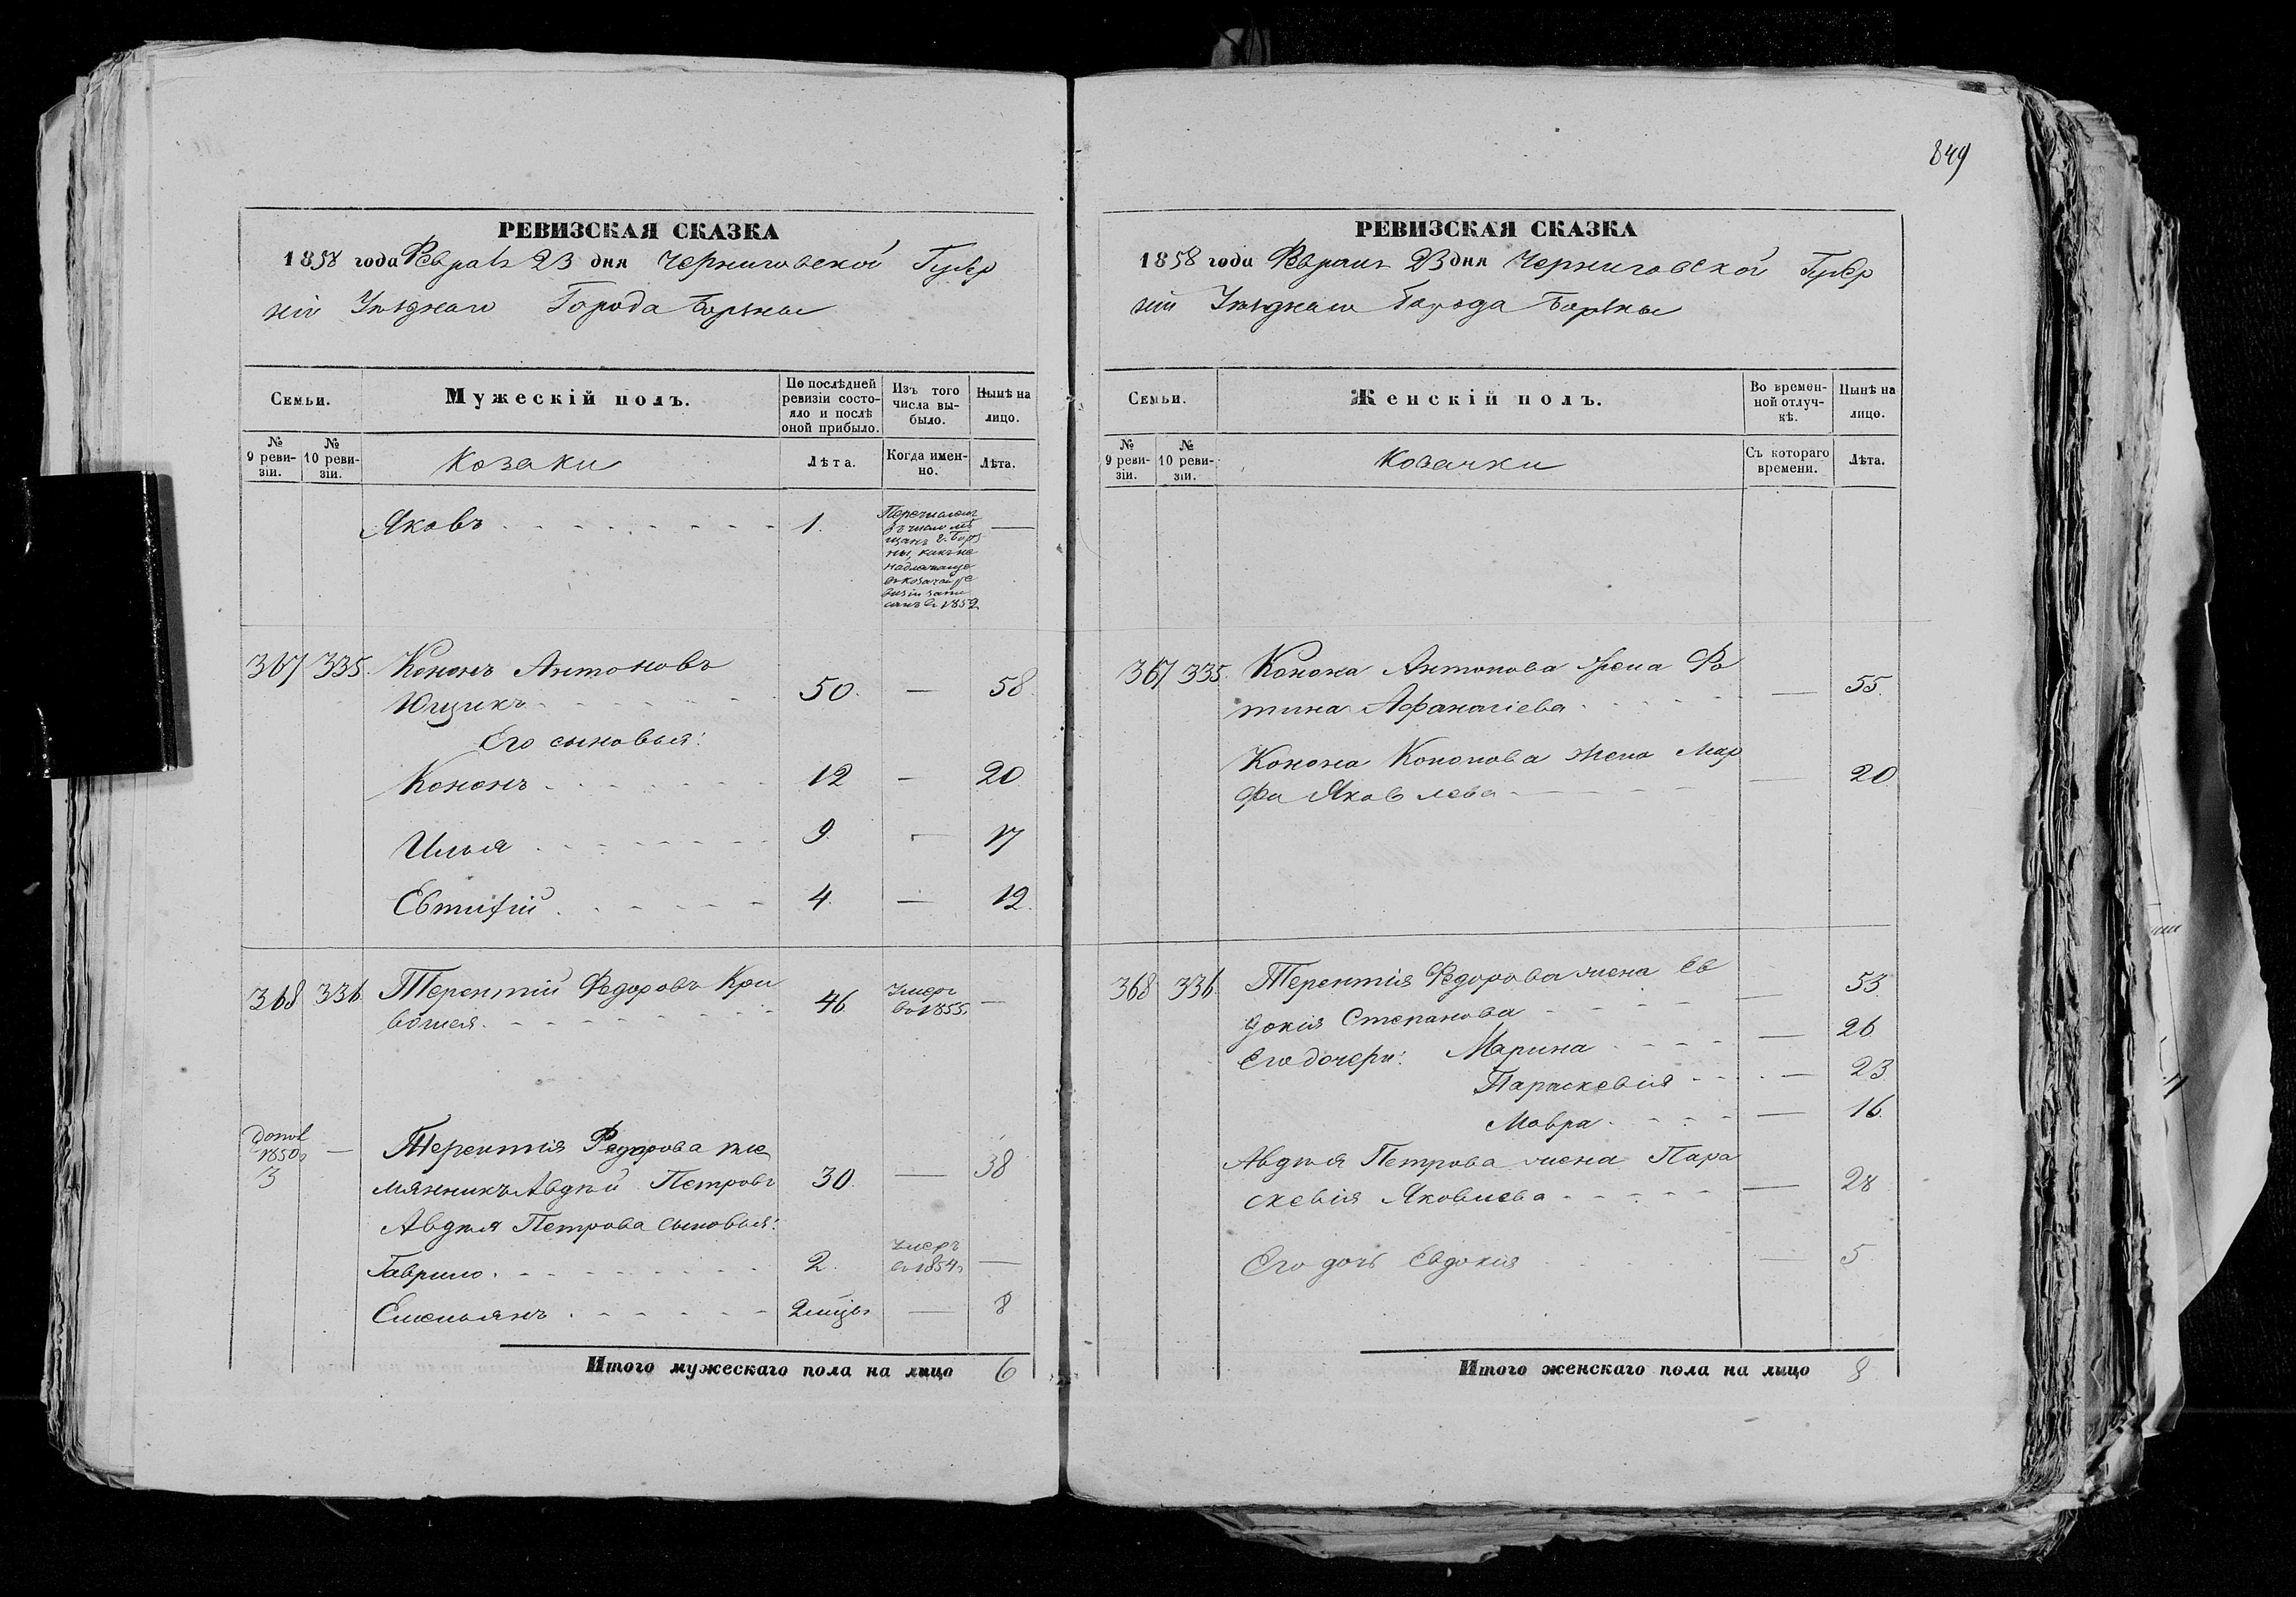 849
РЕВИЗСКАЯ СКАЗКА
1858 года Февраля 23 дня Черниговской Губер
ніи Уѣзднаго Города Борзны
Семьи. Мужескій полъ. По послѣдней ревизіи состояло и послѣ оной прибыло. Изъ того числа выбыло. Нынѣ на лицо.
№ 9 ревизіи. № 10 ревизіи. Козаки Лѣта. Когда именно. Лѣта.
Яковъ 1. —
Перечисленъ
въ число мѣ
щанъ г. Борз
ны, какъ не
надлежаще
въ козачай ре
визіи запи
санъ въ 1852
367 335. Кононъ Антоновъ
Ющикъ 50. — 58.
Его сыновья:
Кононъ 12 — 20
Илья 9. — 17
Евтифій 4. — 12.
368 336 Терентій Федоровъ Кри
вошея. 46 умеръ въ 1855. —
Допол 1850 3 — Терентія Федорова пле
мянникъ Авдѣй Петровъ 30 — 38
Авдѣя Петрова сыновья:
Гаврило. 2. умеръ в 1854 —
Емельянъ 2 мѣця — 8
Итого мужескаго пола на лицо 6
РЕВИЗСКАЯ СКАЗКА
1858 года Февраля 23 дня Черниговской Губер
ніи Уѣзднаго Города Борзны
Семьи. Женскій полъ. Во временной отлучкѣ. Нынѣ на лицо.
№ 9 ревизіи. № 10 ревизіи. Козачки Съ котораго времени. Лѣта.
367 335. Конона Антонова жена Фо
тина Афанасіева — 55.
Конона Кононова жена Мар
фа Яковлева — 20
368 336 Терентія Федорова жена Ев
докія Степанова — 53
Его дочери: Марина — 26
Параскевія — 23
Мавра — 16
Авдѣя Петрова жена Пара
скевія Яковлева — 28
Его дочь Евдокія — 5
Итого женскаго пола на лицо 8